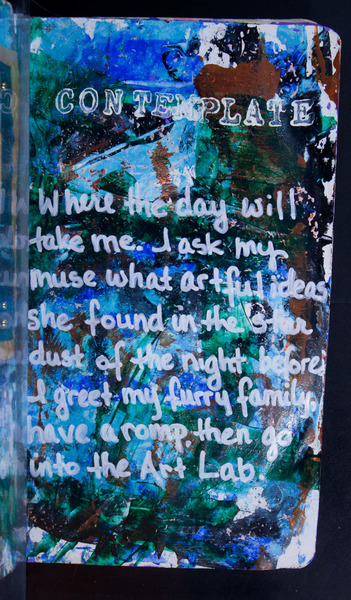 CONTEMPLATE
Where the day will
take me. I ask my
muse what artful ideas
she found in the star
dust of the night before
I greet my furry family,
have a romp, then go
into the Art Lab.